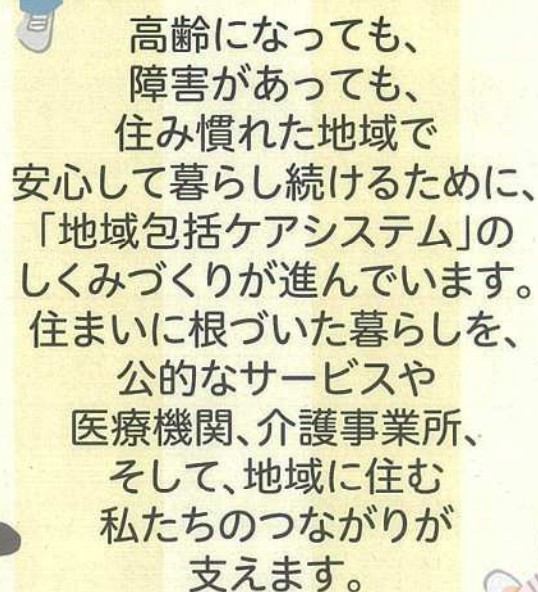 高齢になっても、
障害があっても、
住み慣れた地域で
安心して暮らし続けるために、
「地域包括ケアシステム」の
しくみづくりが進んでいます。
住まいに根づいた暮らしを、
公的なサービスや
医療機関、介護事業所、
そして、地域に住む
私たちのつながりが
支えます。